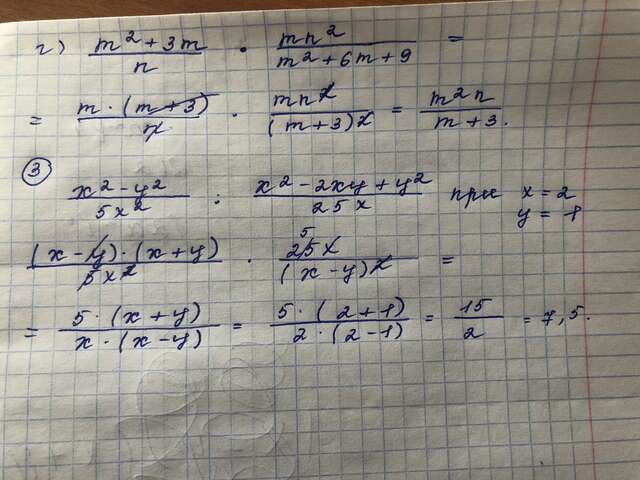 г) (m² + 3m)/n · mn²/(m² + 6m + 9) =
= m · (m + 3)/n · mn²/(m + 3)² = m²n/(m + 3).
③
(x² - y²)/5x² : (x² - 2xy + y²)/25x при x = 2
y = 1
(x - y) · (x + y)/5x² · 25x/(x - y)² =
5
= 5 · (x + y)/x · (x - y) = 5 · (2 + 1)/2 · (2 - 1) = 15/2 = 7,5.